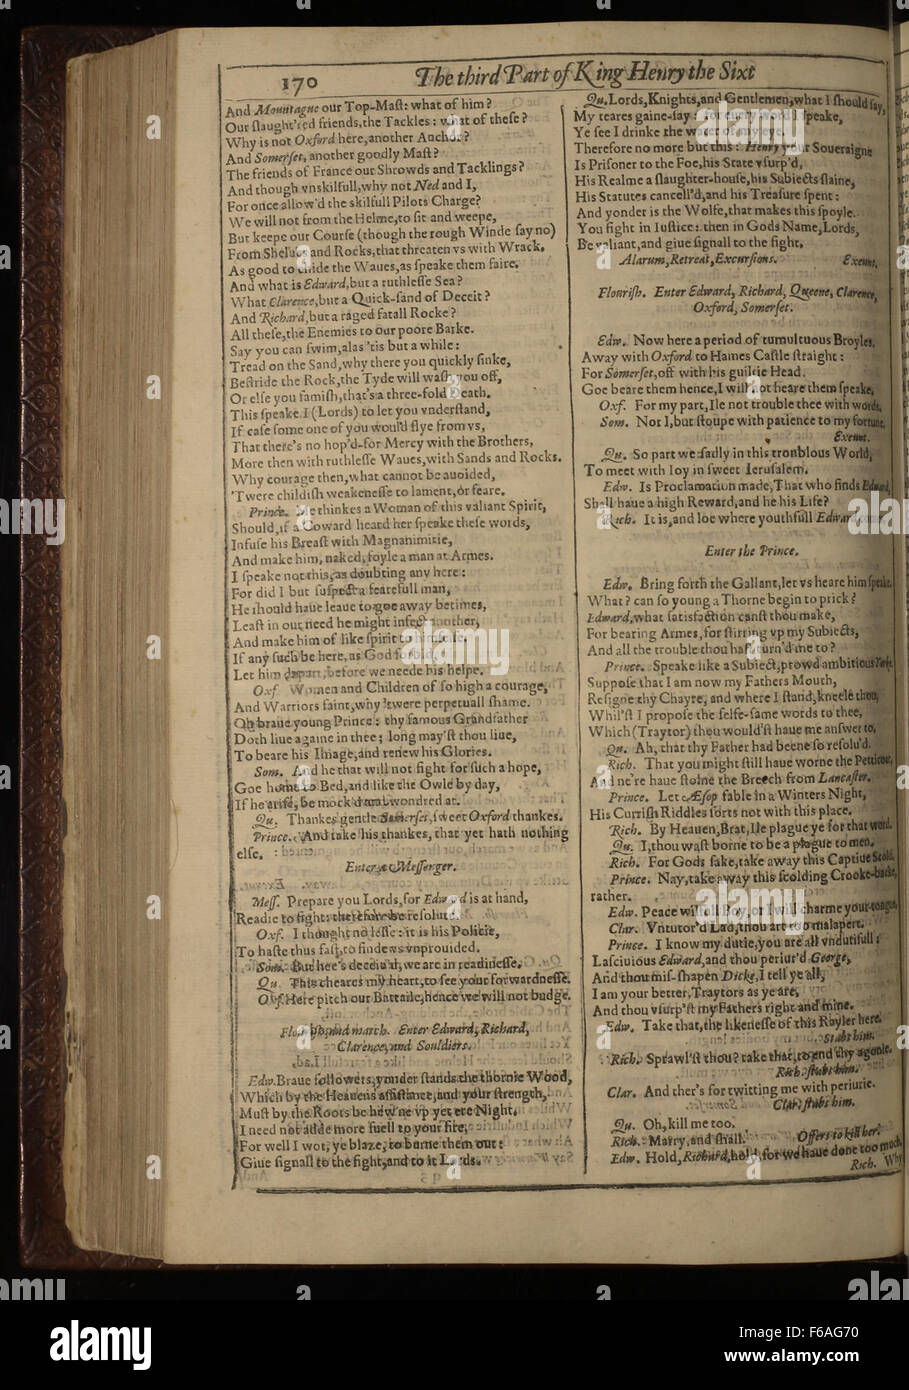 170
The third Part of King Henry the Sixt
And Mountague our Top-Maſt: what of him?
Our ſlaught'red friends, the Tackles: what of theſe?
Why is not Oxford here, another Anchor?
And Somerſet, another goodly Maſt?
The friends of France our Shrowds and Tacklings?
And though vnskilfull, why not Ned and I,
For once allow'd the skilfull Pilots Charge?
We will not from the Helme, to ſit and weepe,
But keepe our Courſe (though the rough Winde ſay no)
From Shelues and Rocks, that threaten vs with Wrack.
As good to chide the Waues, as ſpeake them faire.
And what is Edward, but a ruthleſſe Sea?
What Clarence, but a Quick-ſand of Deceit?
And Richard, but a raged fatall Rocke?
All theſe, the Enemies to our poore Barke.
Say you can ſwim, alas 'tis but a while:
Tread on the Sand, why there you quickly ſinke,
Beſtride the Rock, the Tyde will waſh you off,
Or elſe you famiſh, that's a three-fold Death.
This ſpeake I (Lords) to let you vnderſtand,
If caſe ſome one of you would flye from vs,
That there's no hop'd-for Mercy with the Brothers,
More then with ruthleſſe Waues, with Sands and Rocks.
Why courage then, what cannot be auoided,
'Twere childiſh weakeneſſe to lament, or feare.
Prince. Me thinkes a Woman of this valiant Spirit,
Should, if a Coward heard her ſpeake theſe words,
Infuſe his Breaſt with Magnanimitie,
And make him, naked, foyle a man at Armes.
I ſpeake not this, as doubting any here:
For did I but ſuſpect a fearefull man,
He ſhould haue leaue to goe away betimes,
Leaſt in our need he might infect another,
And make him of like ſpirit to himſelfe.
If any ſuch be here, as God forbid,
Let him depart, before we neede his helpe.
Oxf Women and Children of ſo high a courage,
And Warriors faint, why 'twere perpetuall ſhame.
Oh braue young Prince: thy famous Grandfather
Doth liue againe in thee; long may'ſt thou liue,
To beare his Image, and renew his Glories.
Som. And he that will not fight for ſuch a hope,
Goe home to Bed, and like the Owle by day,
If he ariſe, be mock'd and wondred at.
Qu. Thankes gentle Somerſet, ſweet Oxford thankes.
Prince. And take his thankes, that yet hath nothing
elſe.
Enter a Meſſenger.
Meſſ. Prepare you Lords, for Edward is at hand,
Readie to fight: therefore be reſolute.
Oxf. I thought no leſſe: it is his Policie,
To haſte thus faſt, to finde vs vnprouided.
Som. But hee's deceiu'd, we are in readineſſe.
Qu This cheares my heart, to ſee your forwardneſſe.
Oxf. Here pitch our Battaile, hence we will not budge.
Flouriſh, and march. Enter Edward, Richard,
Clarence, and Souldiers.
Edw. Braue followers, yonder ſtands the thornie Wood,
Which by the Heauens aſſiſtance, and your ſtrength,
Muſt by the Roots be hew'ne vp yet ere Night.
I need not adde more fuell to your fire,
For well I wot, ye blaze, to burne them out:
Giue ſignall to the fight, and to it Lords.
Qu. Lords, Knights, and Gentlemen, what I ſhould ſay,
My teares gaine-ſay: for euery word I ſpeake,
Ye ſee I drinke the water of my eye.
Therefore no more but this: Henry your Soueraigne
Is Priſoner to the Foe, his State vſurp'd,
His Realme a ſlaughter-houſe, his Subiects ſlaine,
His Statutes cancell'd, and his Treaſure ſpent:
And yonder is the Wolfe, that makes this ſpoyle.
You fight in Iuſtice: then in Gods Name, Lords,
Be valiant, and giue ſignall to the fight.
Alarum, Retreat, Excurſions. Exeunt.
Flouriſh. Enter Edward, Richard, Queene, Clarence,
Oxford, Somerſet.
Edw. Now here a period of tumultuous Broyles.
Away with Oxford to Hames Caſtle ſtraight:
For Somerſet, off with his guiltie Head.
Goe beare them hence, I will not heare them ſpeake,
Oxf. For my part, Ile not trouble thee with words,
Som. Nor I, but ſtoupe with patience to my fortune,
Exeunt.
Qu. So part we ſadly in this troublous World,
To meet with Ioy in ſweet Ieruſalem.
Edw. Is Proclamation made, That who finds Edward,
Shall haue a high Reward, and he his Life?
Rich. It is, and loe where youthfull Edward comes
Enter the Prince.
Edw. Bring forth the Gallant, let vs heare him ſpeake.
What? can ſo young a Thorne begin to prick?
Edward, what ſatisfaction canſt thou make,
For bearing Armes, for ſtirring vp my Subiects,
And all the trouble thou haſt turn'd me to?
Prince. Speake like a Subiect, prowd ambitious Yorke.
Suppoſe that I am now my Fathers Mouth,
Reſigne thy Chayre, and where I ſtand, kneele thou,
Whil'ſt I propoſe the ſelfe-ſame words to thee,
Which (Traytor) thou would'ſt haue me anſwer to,
Qu. Ah, that thy Father had beene ſo reſolu'd.
Rich. That you might ſtill haue worne the Petticoat,
And ne're haue ſtolne the Breech from Lancaſter.
Prince. Let Æſop fable in a Winters Night,
His Curriſh Riddles ſorts not with this place.
Rich. By Heauen, Brat, Ile plague ye for that word.
Qu. I, thou waſt borne to be a plague to men.
Rich. For Gods ſake, take away this Captiue Scold.
Prince. Nay, take away this ſcolding Crooke-backe,
rather.
Edw. Peace wilfull Boy, or I will charme your tongue.
Clar. Vntutor'd Lad, thou art too malapert.
Prince. I know my dutie, you are all vndutifull:
Laſciuious Edward, and thou periur'd George,
And thou miſ-ſhapen Dicke, I tell ye all,
I am your better, Traytors as ye are,
And thou vſurp'ſt my Fathers right and mine.
Edw. Take that, the likeneſſe of this Rayler here.
Stabs him.
Rich. Sprawl'ſt thou? take that, to end thy agonie.
Rich. ſtabs him.
Clar. And ther's for twitting me with periurie.
Clar. ſtabs him.
Qu. Oh, kill me too.
Rich. Marry, and ſhall. Offers to kill her.
Edw. Hold, Richard, hold, for we haue done too much
Rich. Why
a
alamy
alamy stock photo
F6AG70
www.alamy.com